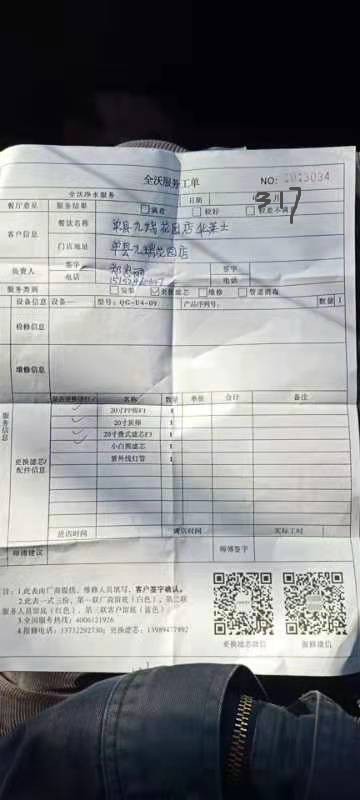 全沃服务工单
NO: 2013034
全沃净水服务
日期
月
317
餐厅意见 服务结果 满意 较好 较差不满
客户信息 餐饮名称
单县九龙花园店华莱士
门店地址 单县九龙花园店
负责人 签字 签字
电话 电话
服务类别 安装 更换滤芯 维修 管道消毒
设备信息 设备一 型号:QG-U4-09 产品序列号: 数量 1
检修信息
维修信息
服务信息
名称 数量 单价 合计 备注
20寸PP棉(F) 1
20寸炭棒 1
20寸叠式滤芯(F) 1
小白熊滤芯 1
紫外线灯管 1
更换滤芯/
配件信息
进店时间 离店时间 实际工时
师傅建议 师傅签字
注:1.此表由厂商提供、维修人员填写,客户签字确认。
2.此表一式三份,第一联厂商留底(白色)、第二联
服务人员留底(红色)、第三联客户留底(蓝色)
3.全国服务热线:4006121926
4.报修电话:13732292730; 更换滤芯:13989477992
更换滤芯微信 报修微信